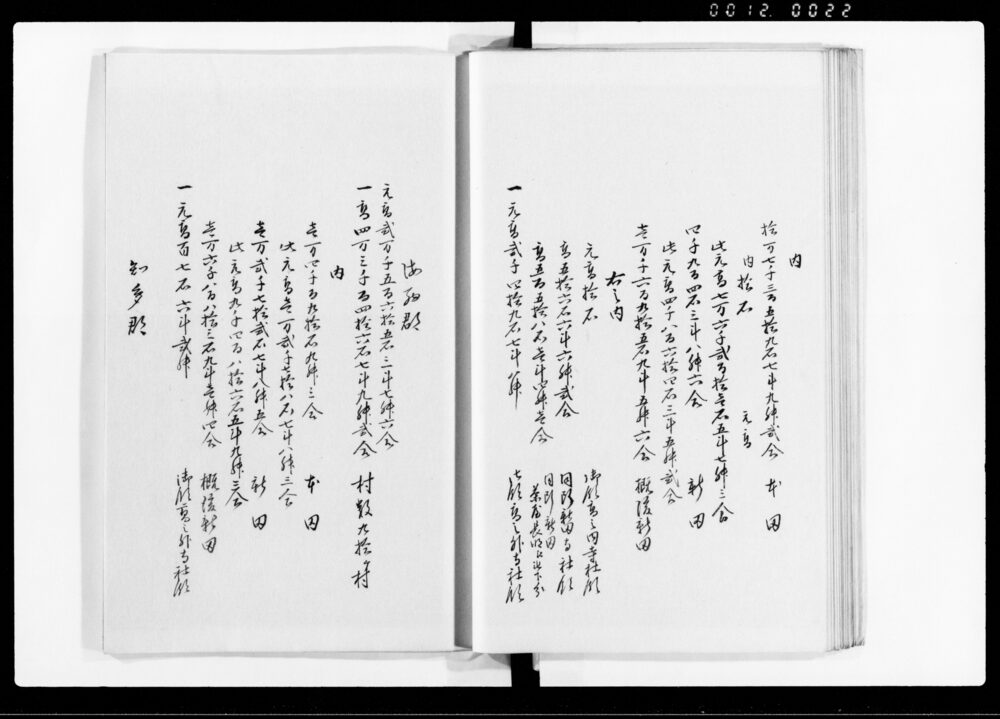 0012. 0022
内
拾万七千三百五拾九石七斗九升弐合 本田
内拾石 元高
此元高七万六千弐百拾壱石五斗七升三合
四千九百四石三斗八升六合 新田
此元高四千八百六拾四石三斗五升弐合
壱万千六百九拾五石九斗五升六合 概後新田
右之内
元高拾石 御領高之内寺社領
高五拾六石六斗六升弐合 同断新田寺社領
高五百五拾八石壱斗四升壱合 同断新田
一 元高弐千四拾九石七斗八升 七領高之外寺社領
海西郡
元高弐万千五百六拾五石三斗七升六合
一 高四万三千百四拾六石七斗九升弐合 村数九拾ケ村
内
壱万四千百九拾石九升三合 本田
此元高壱万弐千七拾八石七斗八升三合
壱万弐千七拾弐石七斗八升五合 新田
此元高九千四百八拾六石五斗九升三合
壱万六千八百八拾三石九斗壱升四合 概後新田
一 元高百七石六斗弐升 御領高之外寺社領
知多郡